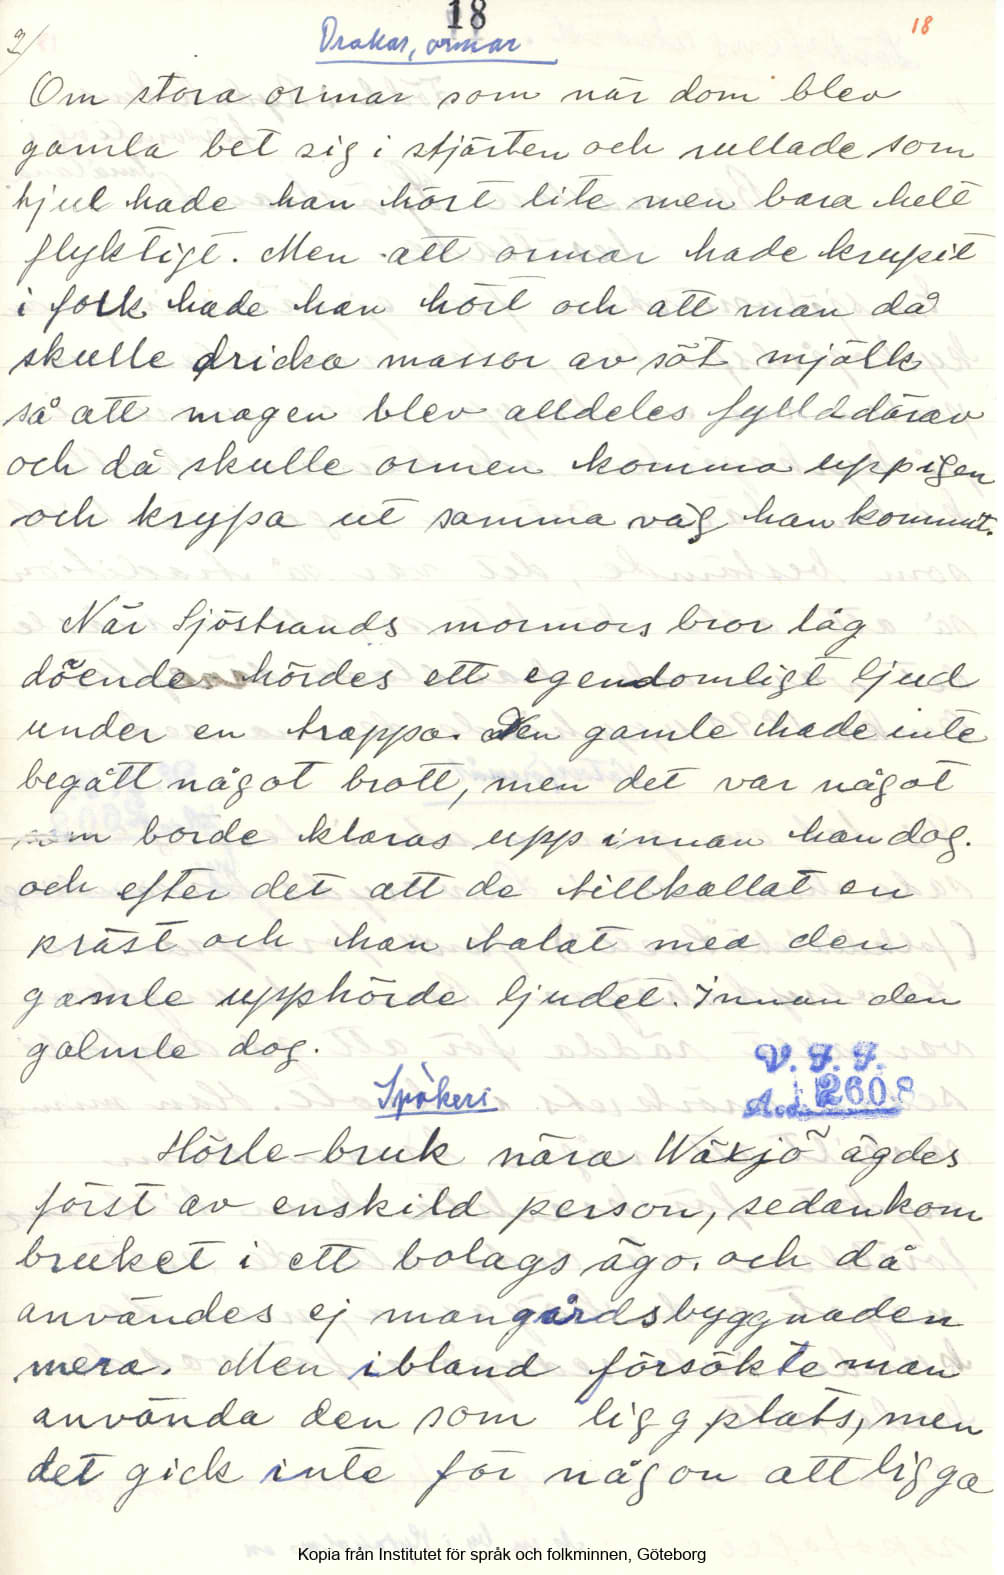 18
18
2/
Drakar, ormar
Om stora ormar som när dom blev
gamla bet sig i stjärten och rullade som
hjul hade han hört lite men bara helt
flyktigt. Men att ormar hade krupit
i folk hade han hört och att man då
skulle dricka massor av söt mjölk
så att magen blev alldeles fylld därav
och då skulle ormen komma upp igen
och krypa ut samma väg han kommit.
När Sjöstrands mormors bror låg
döende hördes ett egendomligt ljud
under en trappa. Den gamle hade inte
begått något brott, men det var något
som borde klaras upp innan han dog.
och efter det att de tillkallat en
präst och han talat med den
gamle upphörde ljudet. Innan den
galmle dog.
V. F. F.
Acc. 2608
Spökeri
Hörle-bruk nära Wäxjö ägdes
först av enskild person, sedan kom
bruket i ett bolags ägo. och då
användes ej mangårdsbyggnaden
mera. Men ibland försökte man
använda den som liggplats, men
det gick inte för någon att ligga
Kopia från Institutet för språk och folkminnen, Göteborg